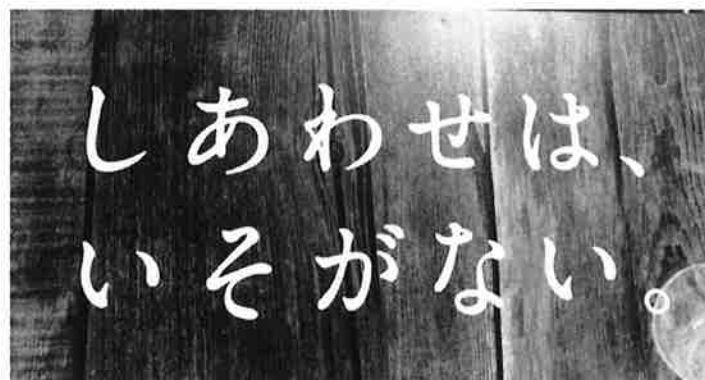 しあわせは、
いそがない。